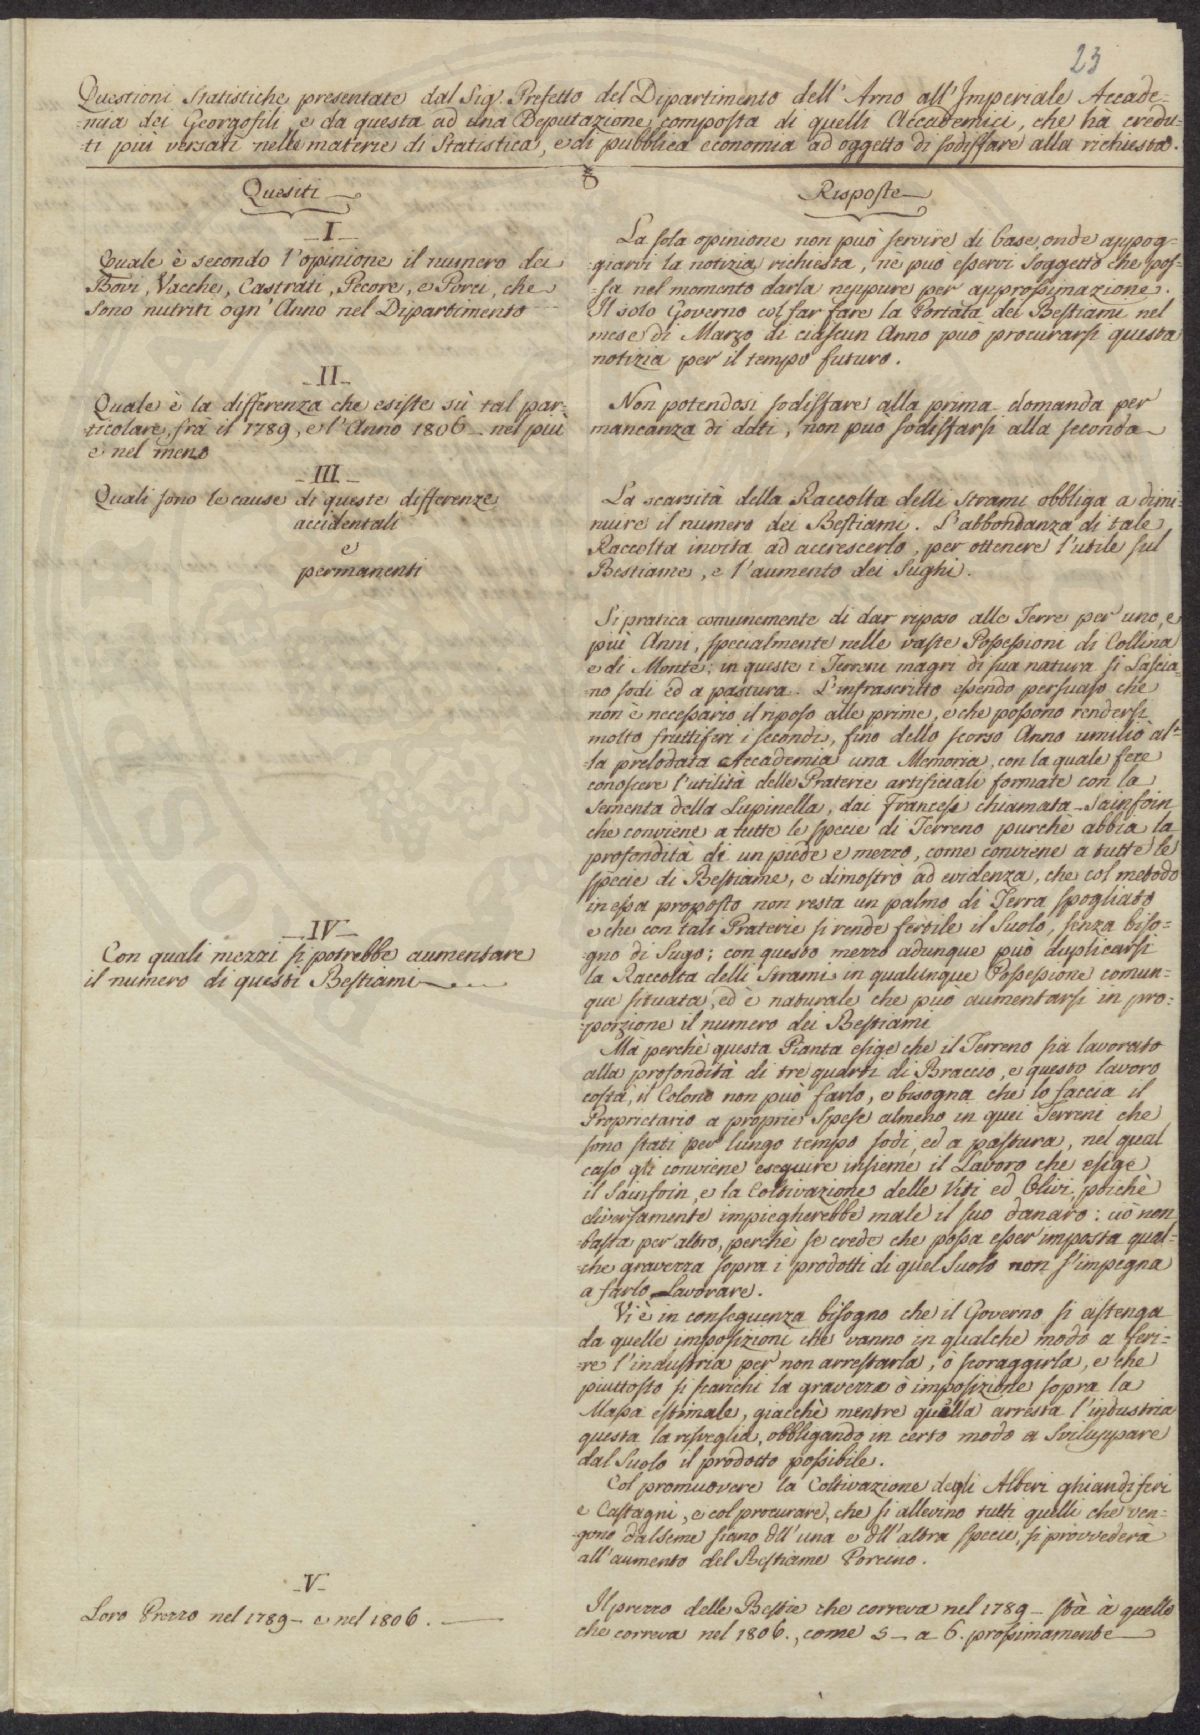 23
Questioni Statistiche presentate dal Sig.r Prefetto del Dipartimento dell'Arno all'Imperiale Accade=
=mia dei Georgofili, e da questa ad una Deputazione composta di quelli Accademici, che ha credu=
=ti più versati nelle materie di Statistica, e di pubblica economia ad oggetto di sodisfare alla richiesta.
Quesiti
I
Quale è secondo l'opinione il numero dei
Bovi, Vacche, Castrati, Pecore, e Porci, che
sono nutriti ogn'Anno nel Dipartimento
II
Quale è la differenza che esiste sù tal par=
ticolare, frà il 1789, e l'Anno 1806 - nel più
e nel meno
III
Quali sono le cause di queste differenze
accidentali
e
permanenti
IV
Con quali mezzi si potrebbe aumentare
il numero di questi Bestiami
V
Loro Prezzo nel 1789 - e nel 1806.
Risposte
La sola opinione non può servire di base, onde appog=
=giarvi la notizia richiesta, nè può esservi Soggetto che pos=
=sa nel momento darla neppure per approssimazione.
Il solo Governo col far fare la Portata dei Bestiami nel
mese di Marzo di ciascun Anno può procurarsi questa
notizia per il tempo futuro.
Non potendosi sodisfare alla prima domanda per
mancanza di dati, non può sodisfarsi alla seconda
La scarsità della Raccolta delli Strami obbliga a dimi=
nuire il numero dei Bestiami. L'abbondanza di tale
Raccolta invita ad accrescerlo, per ottenere l'utile sul
Bestiame, e l'aumento dei Sughi.
Si pratica comunemente di dar riposo alle Terre per uno, e
più Anni, specialmente nelle vaste Possessioni di Collina
e di Monte; in queste i Terreni magri di sua natura si Lascia=
=no sodi ed a pastura. L'infrascritto essendo persuaso che
non è necessario il riposo alle prime, e che possono rendersi
molto fruttiferi i secondi, fino dello scorso Anno umiliò al=
=la prelodata Accademia una Memoria, con la quale fece
conoscere l'utilità delle Praterie artificiali formate con la
sementa della Lupinella, dai Francesi chiamata - Sainfoin
che conviene a tutte le specie di Terreno purchè abbia la
profondità di un piede e mezzo, come conviene a tutte le
specie di Bestiame, e dimostrò ad evidenza, che col metodo
in essa proposto non resta un palmo di Terra spogliato
e che con tali Praterie si rende fertile il Suolo, senza biso=
gno di Sugo; con questo mezzo adunque può duplicarsi
la Raccolta delli Strami in qualunque Possessione comun=
que situata, ed è naturale che può aumentarsi in pro=
porzione il numero dei Bestiami
Mà perchè questa Pianta esige che il Terreno sia lavorato
alla profondità di tre quarti di Braccio, e questo lavoro
costa, il Colono non può farlo, e bisogna che lo faccia il
Proprietario a proprie Spese almeno in quei Terreni che
sono stati per lungo tempo sodi, ed a pastura, nel qual
caso gli conviene eseguire insieme il Lavoro che esige
il Sainfoin, e la Coltivazione delle Viti ed Olivi, poichè
diversamente impiegherebbe male il suo danaro: ciò non
basta per altro, perchè se crede che possa esser imposta qual=
=che gravezza sopra i prodotti di quel Suolo non s'impegna
a farlo Lavorare.
Vi è in conseguenza bisogno che il Governo si astenga
da quelle imposizioni che vanno in qualche modo a feri=
=re l'industria per non arrestarla, ò scoraggirla, e che
piuttosto si scarichi la gravezza ò imposizione sopra la
Massa estimale, giacchè mentre quella arresta l'industria
questa la risveglia, obbligando in certo modo a Sviluppare
dal Suolo il prodotto possibile.
Col promuovere la Coltivazione degli Alberi ghiandiferi
e Castagni, e col procurare, che si allevino tutti quelli che ven=
=gono dal seme siano dll'una e dll'altra specie, si provvederà
all'aumento del Bestiame Porcino.
Il prezzo delle Bestie che correva nel 1789 - stà à quello
che correva nel 1806., come 5 - a 6. prossimamente